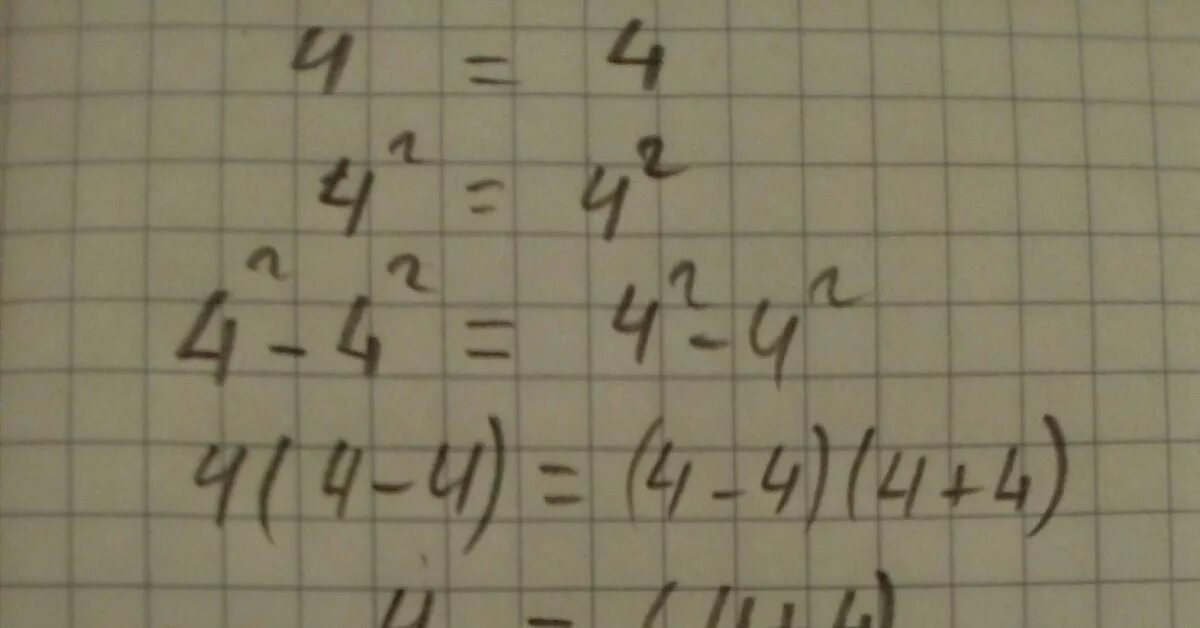 4 = 4
4² = 4²
4² - 4² = 4² - 4²
4(4-4) = (4-4)(4+4)
4 = (4+4)